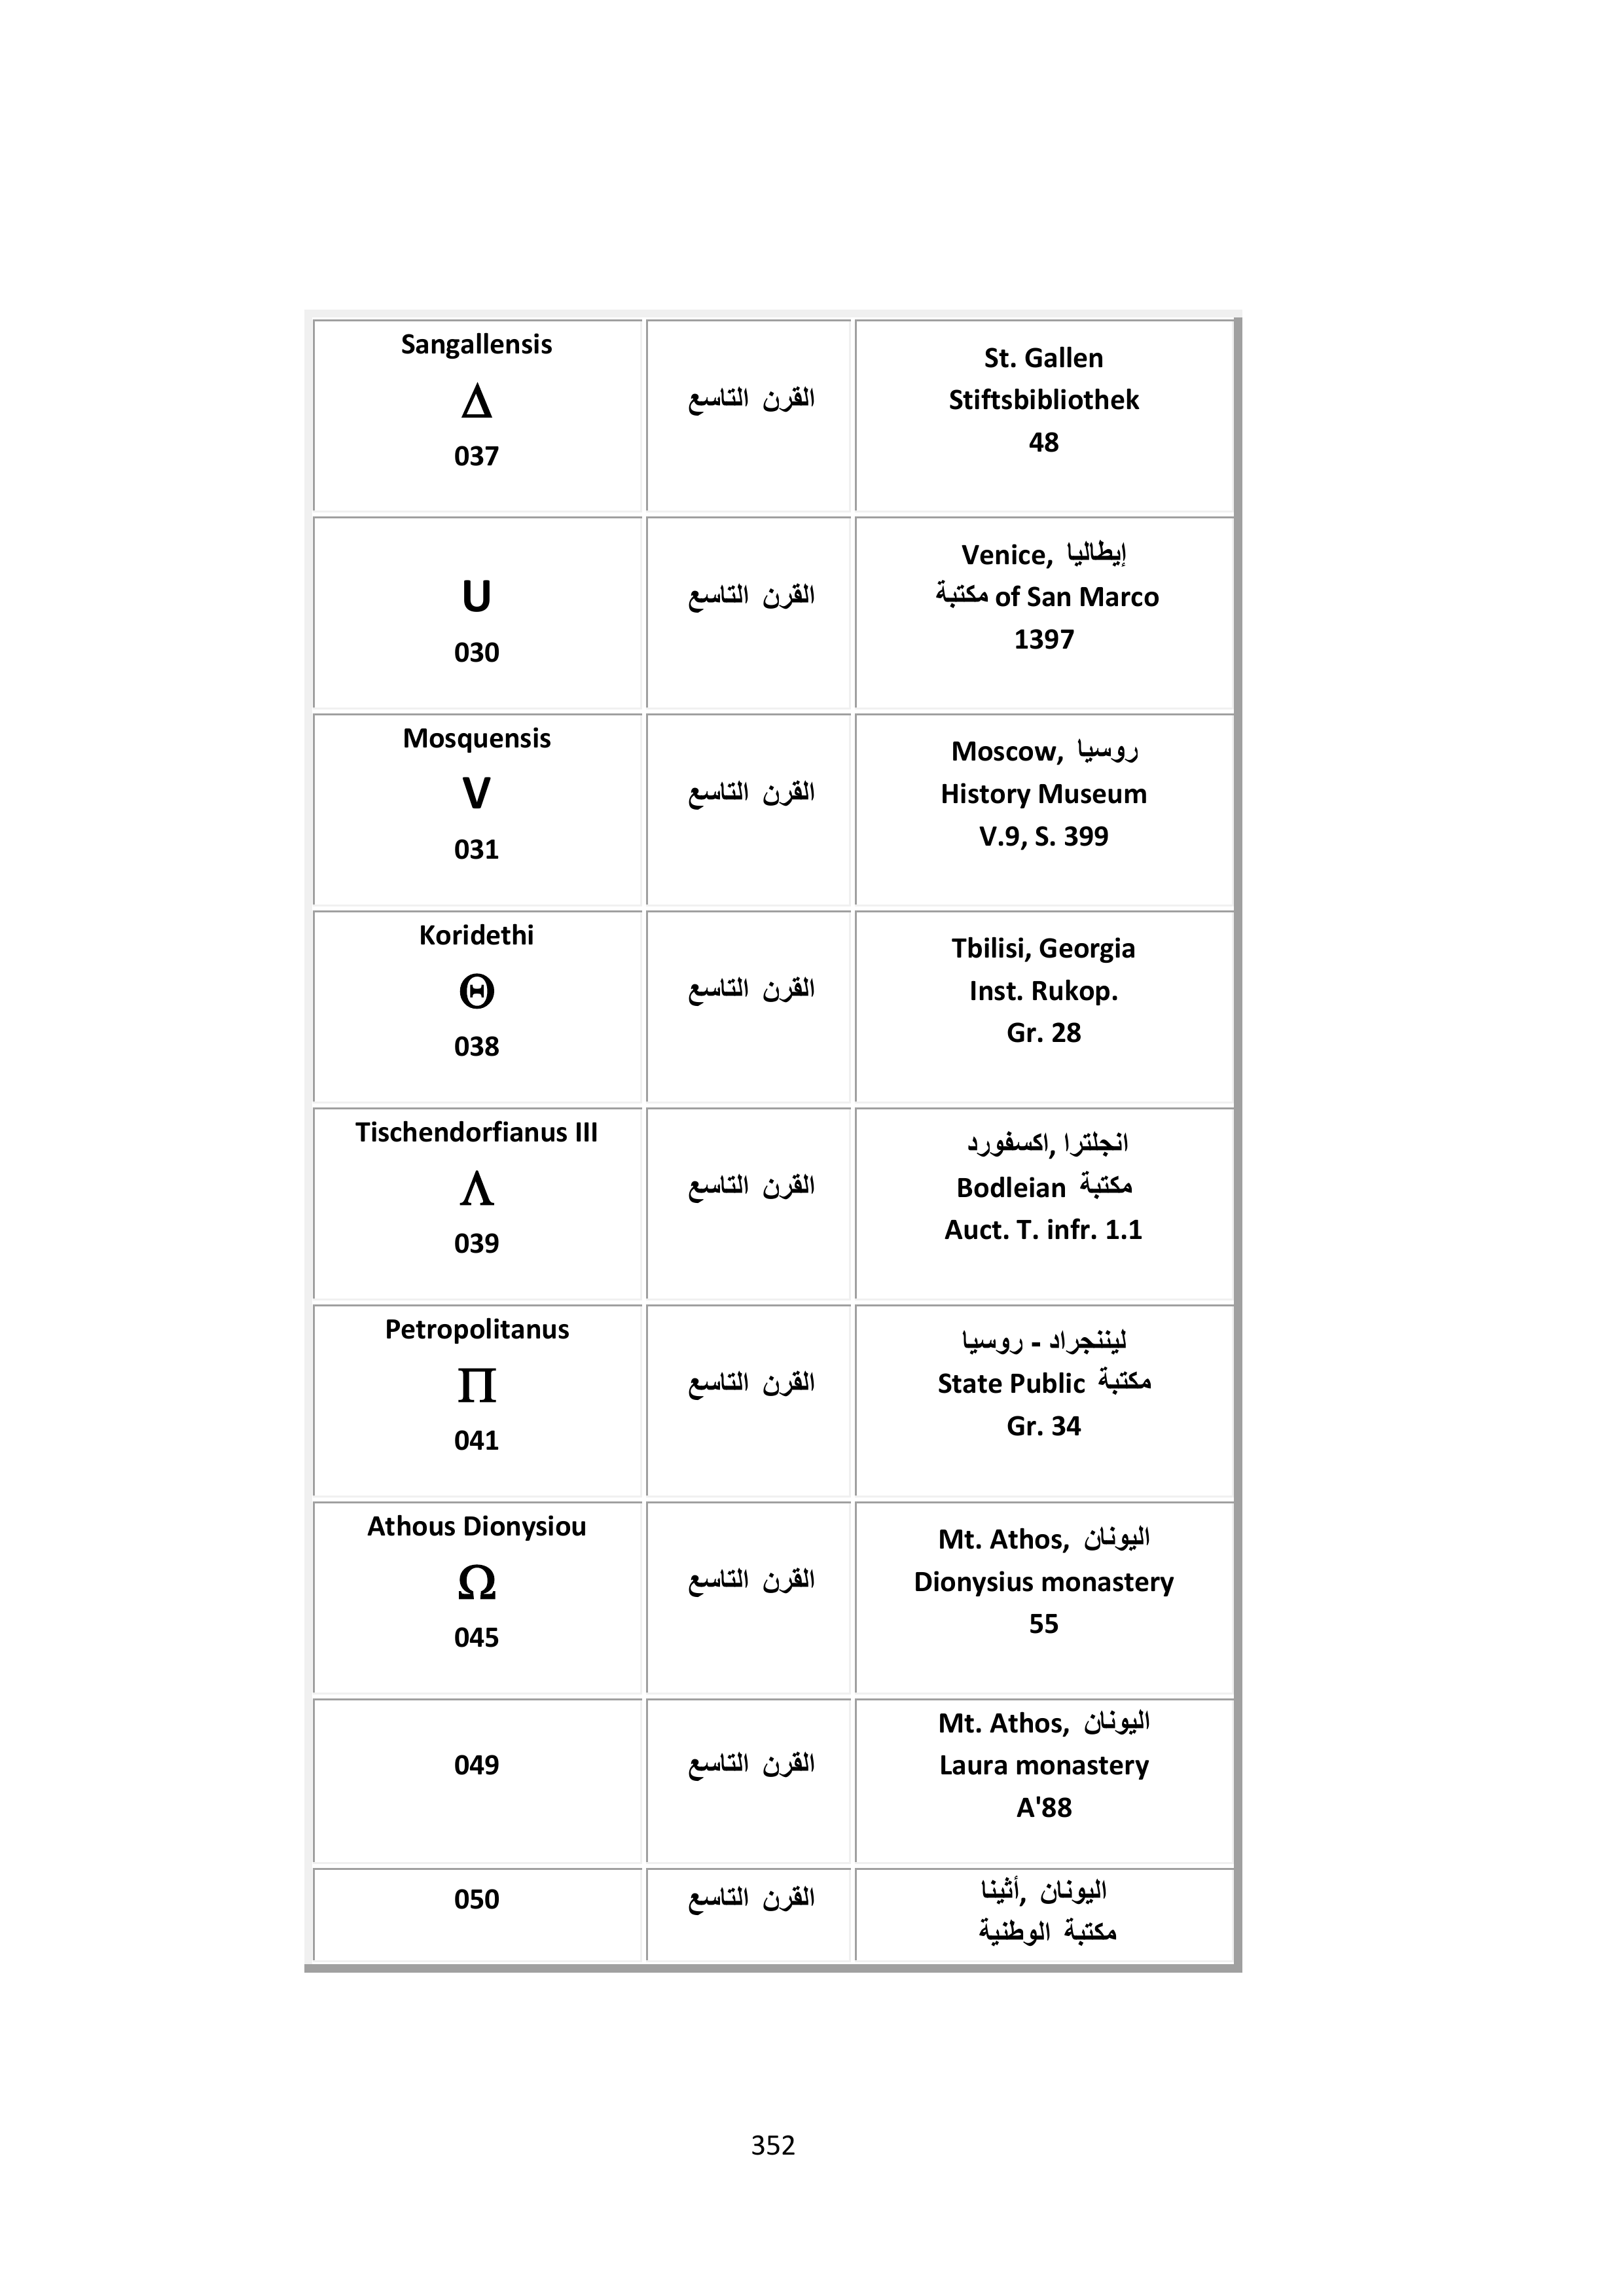 Sangallensis
Δ
037
القرن التاسع
St. Gallen
Stiftsbibliothek
48
U
030
القرن التاسع
Venice, إيطاليا
مكتبة of San Marco
1397
Mosquensis
V
031
القرن التاسع
Moscow, روسيا
History Museum
V.9, S. 399
Koridethi
Θ
038
القرن التاسع
Tbilisi, Georgia
Inst. Rukop.
Gr. 28
Tischendorfianus III
Λ
039
القرن التاسع
انجلترا ,اكسفورد
Bodleian مكتبة
Auct. T. infr. 1.1
Petropolitanus
Π
041
القرن التاسع
ليننجراد - روسيا
State Public مكتبة
Gr. 34
Athous Dionysiou
Ω
045
القرن التاسع
Mt. Athos, اليونان
Dionysius monastery
55
049
القرن التاسع
Mt. Athos, اليونان
Laura monastery
A'88
050
القرن التاسع
اليونان ,أثينا
مكتبة الوطنية
352